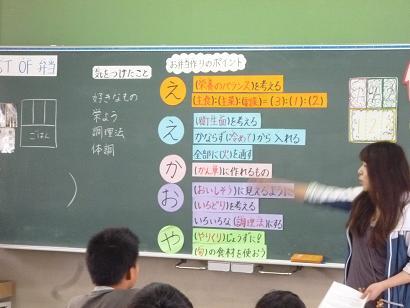 ST OF 弁当
気をつけたこと
好きなもの
栄よう
調理法
体調
ごはん
お弁当作りのポイント
え
(栄養のバランス)を考える
(主食):(主菜):(副菜)=(3):(1):(2)
え
(衛生面)を考える
かならず(冷めて)から入れる
全部に(火)を通す
か
(かん単)に作れるもの
お
(おいしそう)に見えるように
(いろどり)を考える
いろいろな(調理法)にする
や
(やりくり)じょうずに?
(旬)の食材を使おう